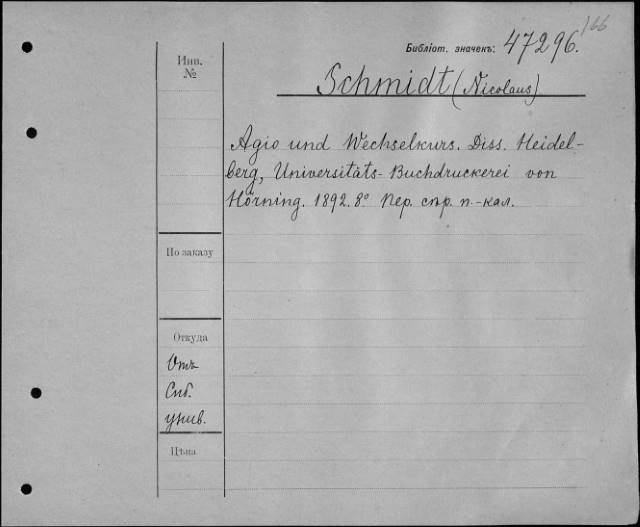 166
Библіот. значекъ: 47296.
Инв.
№
Schmidt (Nicolaus)
Agio und Wechselkurs. Diss. Heidel-
berg, Universitäts-Buchdruckerei von
Hörning. 1892. 8° Пер. сѣр. п.-кал.
По заказу
Откуда
Отъ
Спб.
унив.
Цѣна